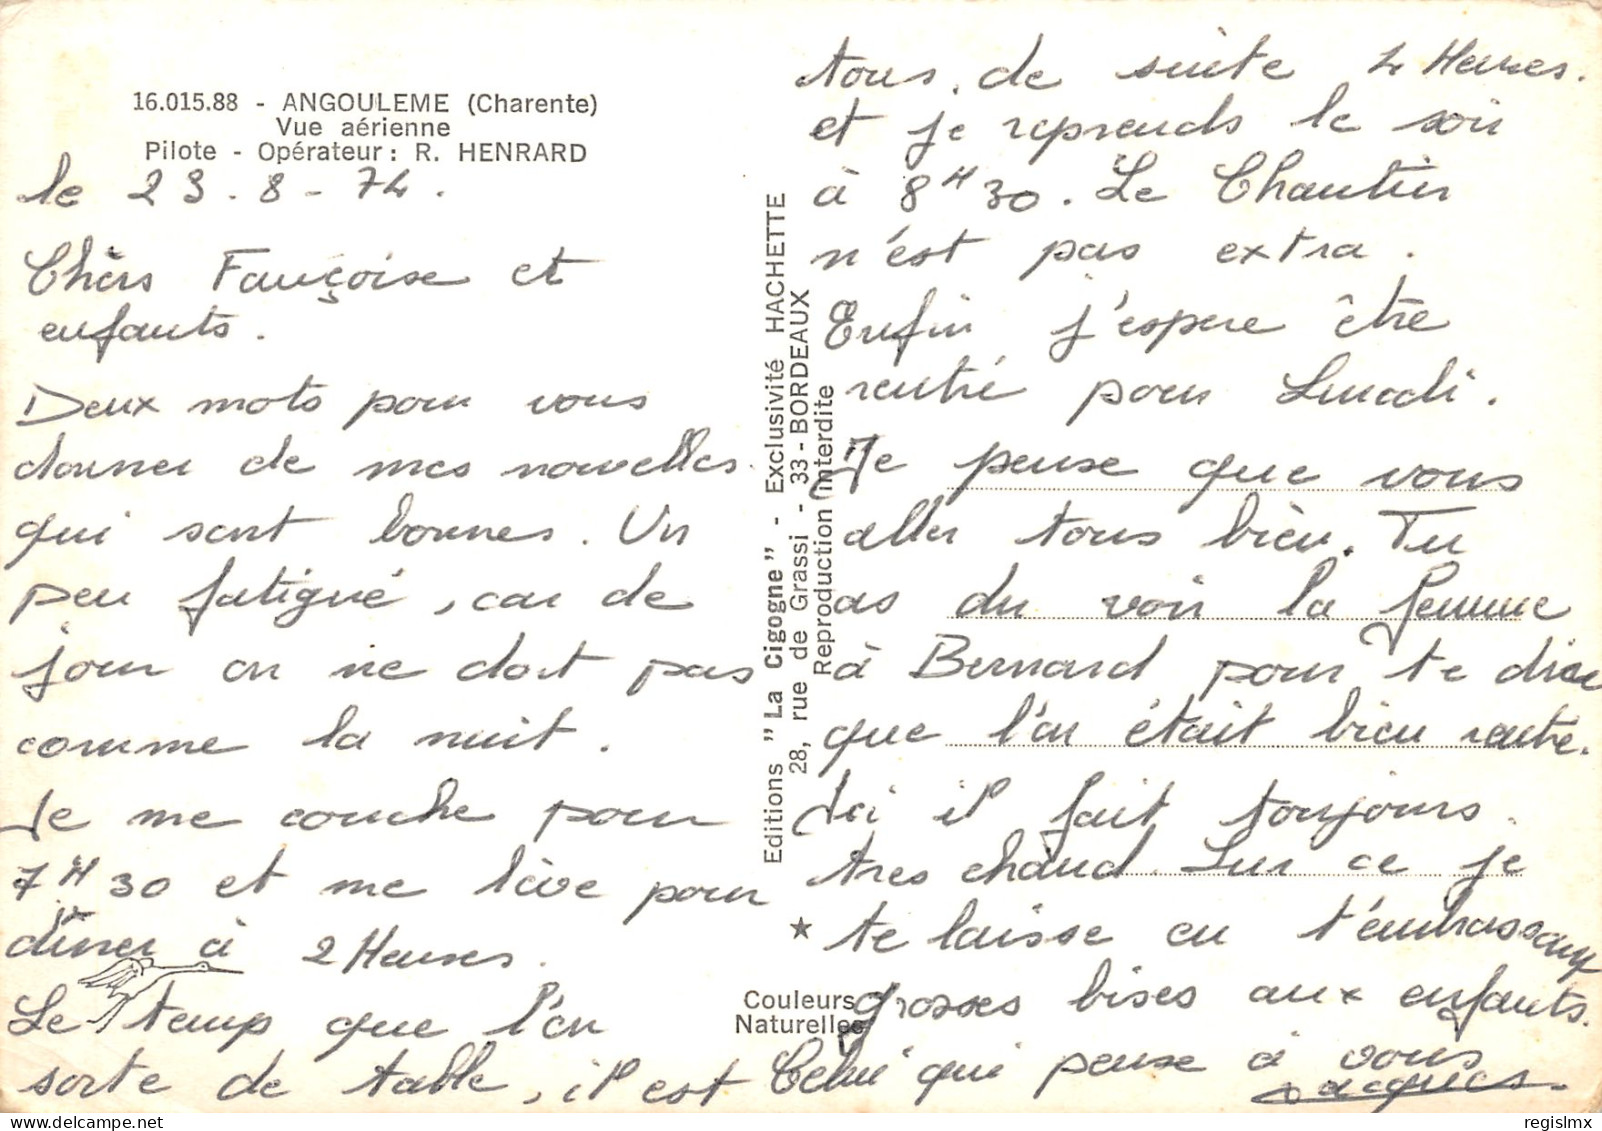 16.015.88 - ANGOULEME (Charente)
Vue aérienne
Pilote - Opérateur : R. HENRARD
le 23.8-74.
Chèrs Françoise et
enfants.
Deux mots pour vous
donner de mes nouvelles
qui sont bonnes. Un
peu fatigué, car de
jour on ne dort pas
comme la nuit.
Je me couche pour
7H30 et me lève pour
diner à 2 Heures.
Le temp que l'on
sorte de table, il est
Editions "La Cigogne" - Exclusivité HACHETTE
28, rue de Grassi - 33 - BORDEAUX
Reproduction interdite
Couleurs
Naturelles
tous de suite 4 Heures.
et je reprends le soir
à 8H30. Le Chantier
n'est pas extra.
Enfin j'espere être
rentré pour Lundi.
Je pense que vous
aller tous bien. Tu
as du voir la femme
à Bernard pour te dire
que l'on était bien rentré.
Ici il fait toujours
tres chaud. Sur ce je
te laisse en t'embrassant
grosses bises aux enfants.
Celui qui pense à vous
Jacques.
regislmx